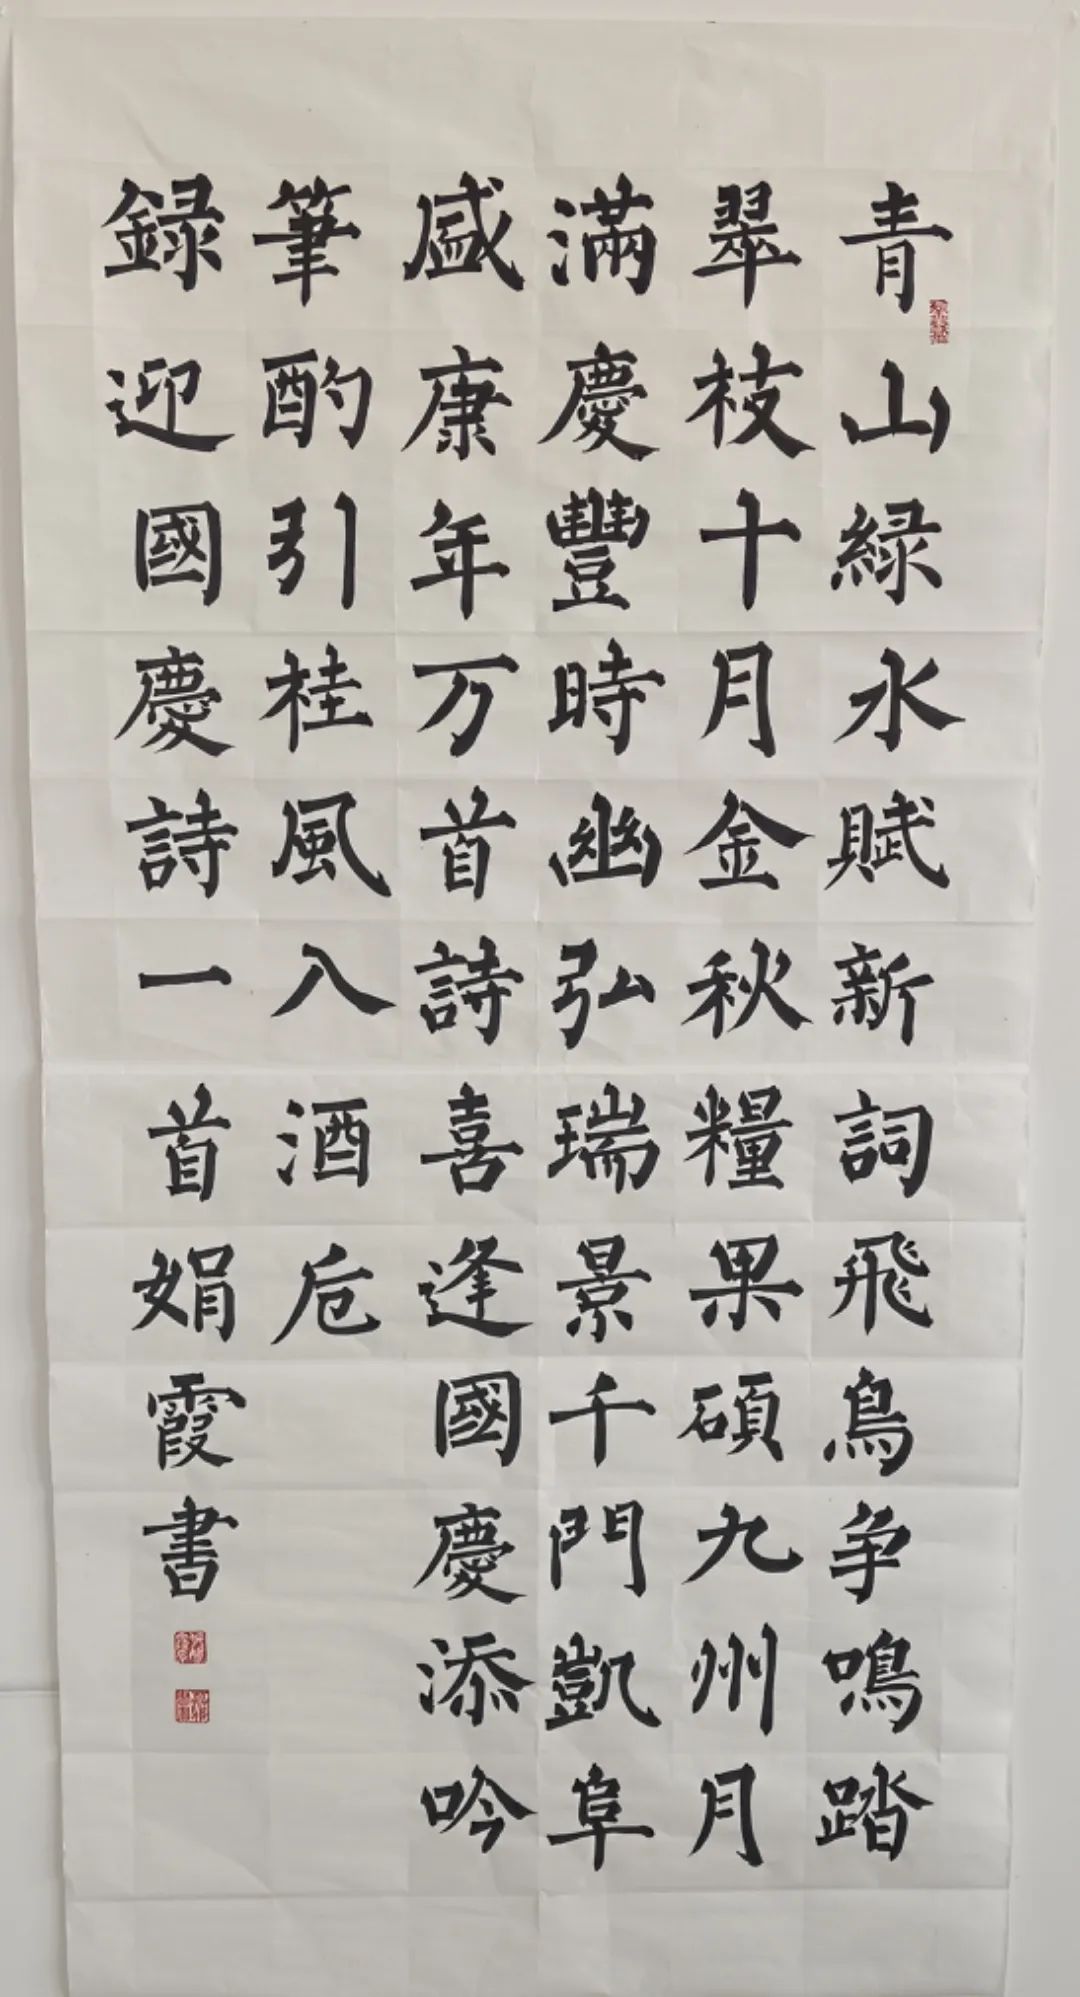 青山緑水賦新詞飛鳥争鳴踏
翠枝十月金秋糧果碩九州月
滿慶豐時幽弘瑞景千門凱阜
盛康年万首詩喜逢國慶添吟
筆酌引桂風入酒卮
録迎國慶詩一首娟霞書